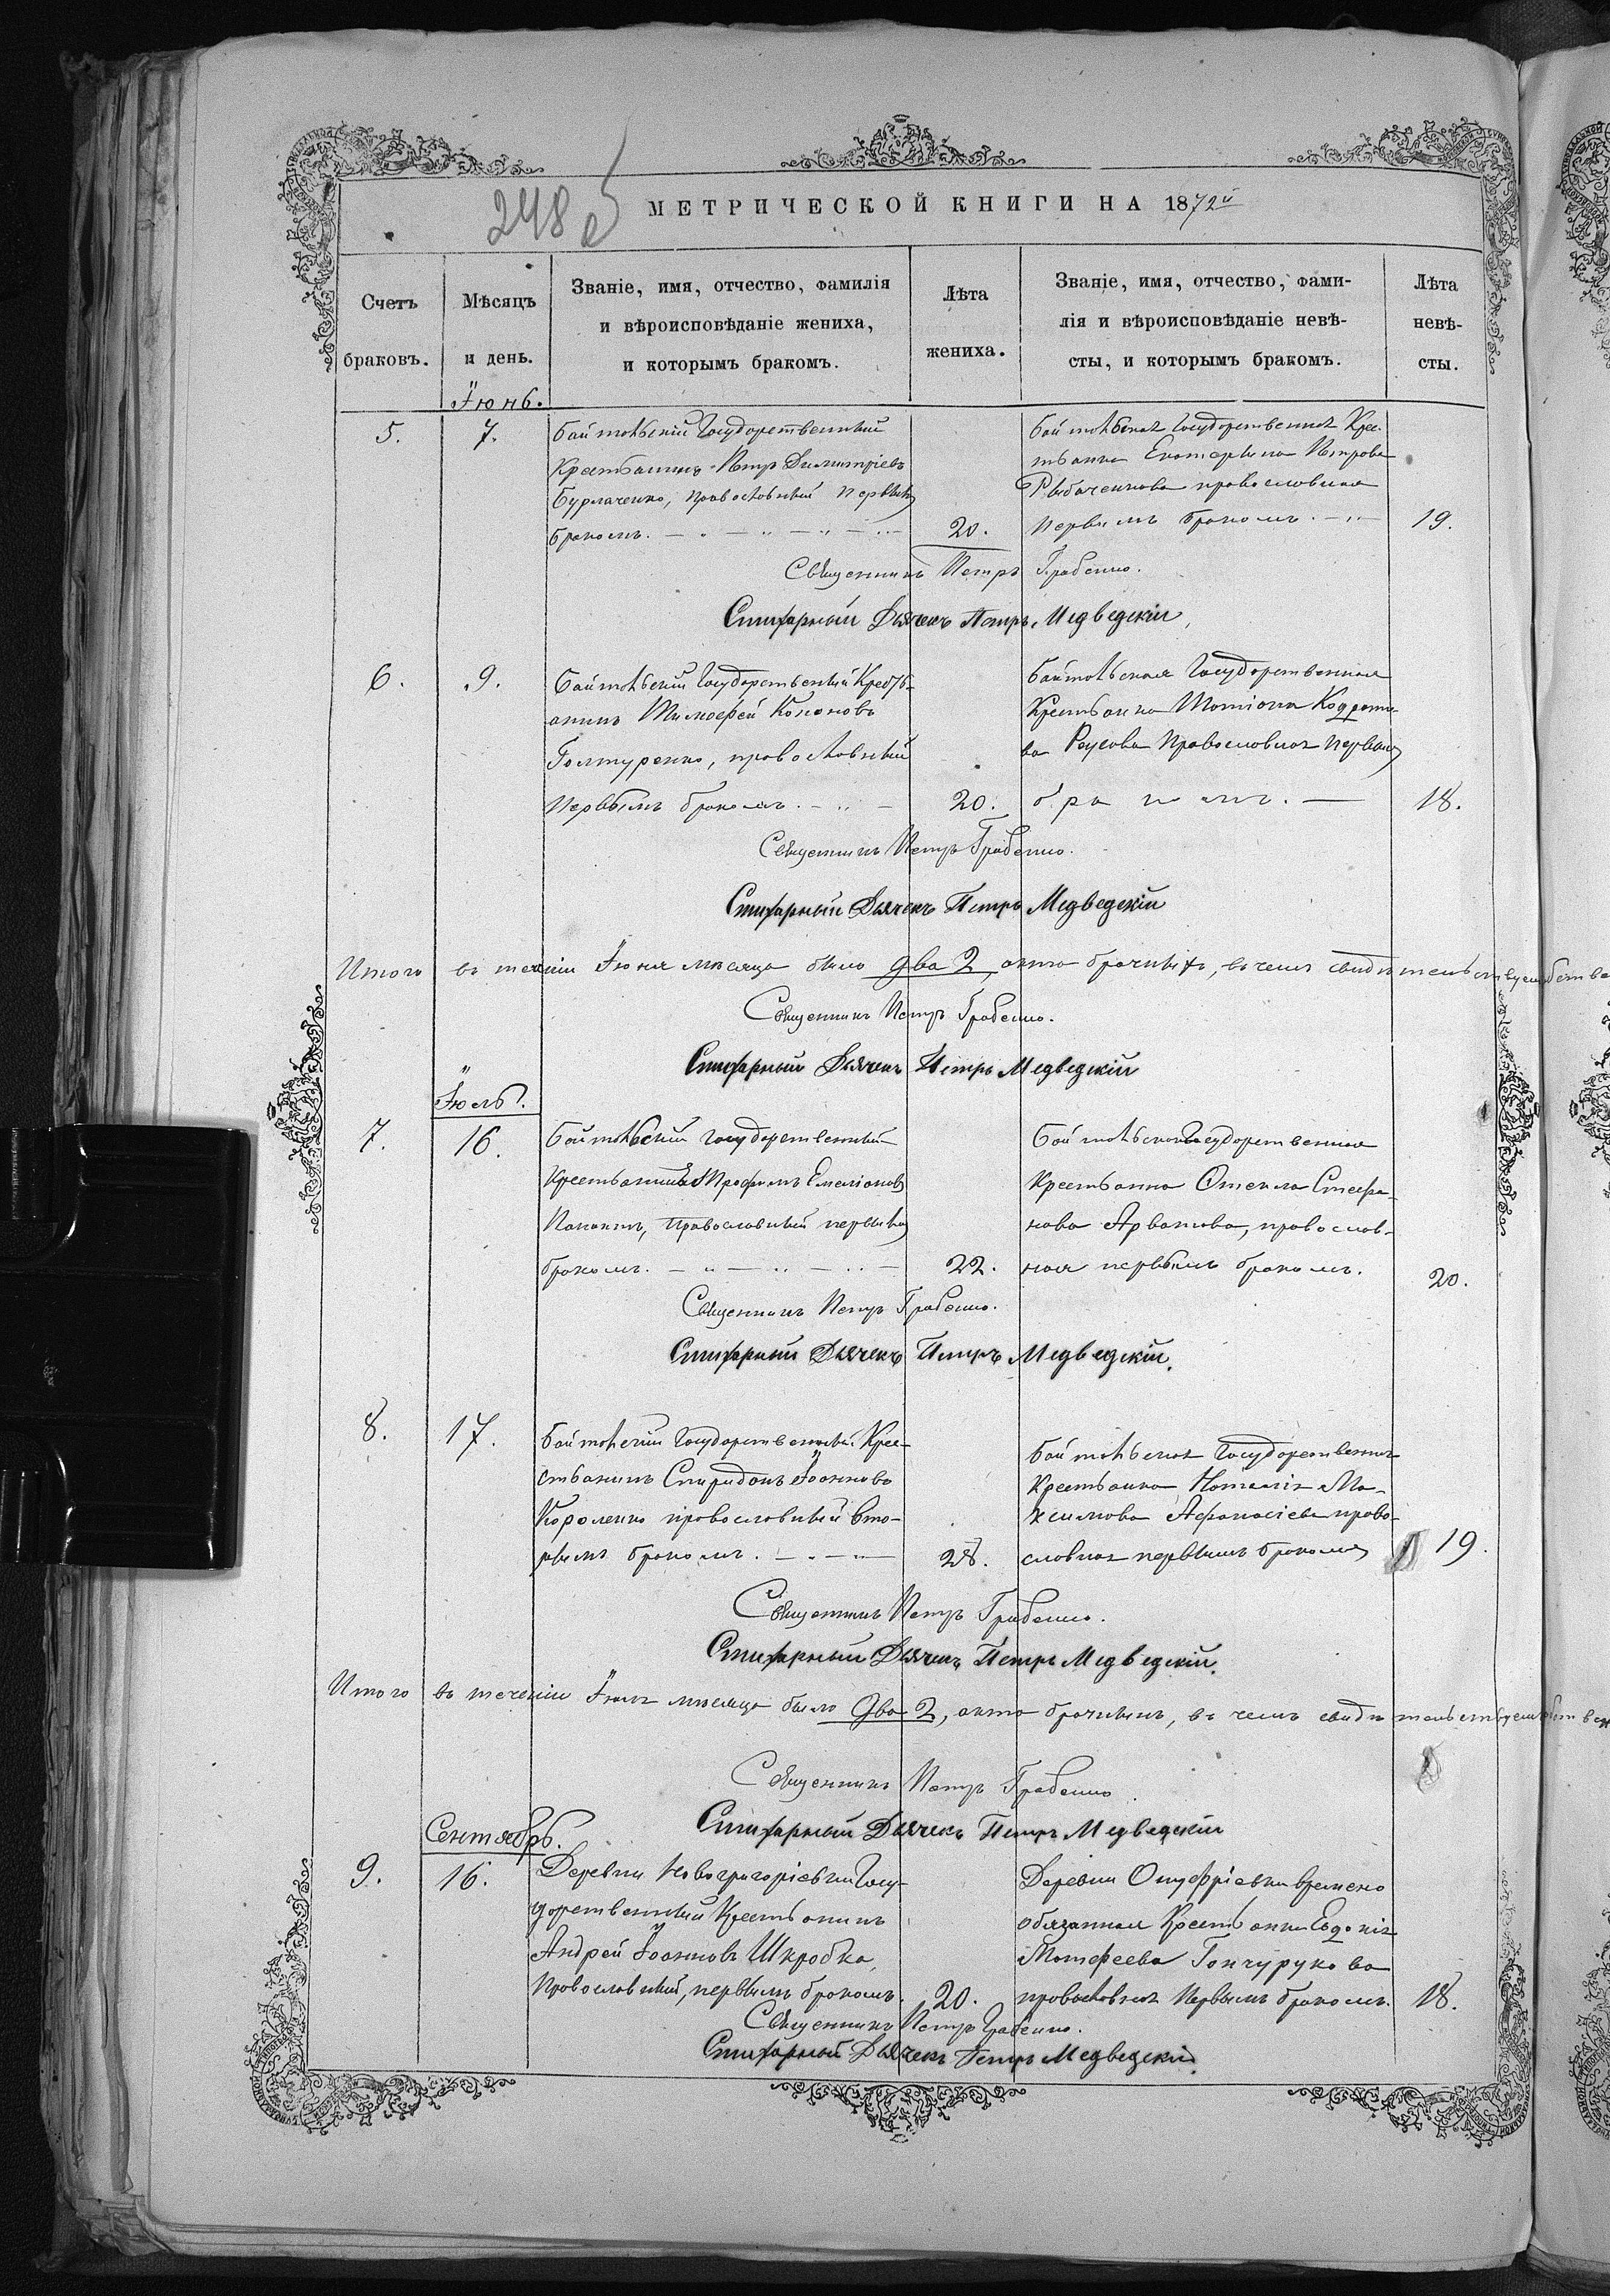 248 об
МЕТРИЧЕСКОЙ КНИГИ НА 1872й
Счетъ
браковъ.
Мѣсяцъ
и день.
Званіе, имя, отчество, фамилія
и вѣроисповѣданіе жениха,
и которымъ бракомъ.
Лѣта
жениха.
Званіе, имя, отчество, фами-
лія и вѣроисповѣданіе невѣ-
сты, и которымъ бракомъ.
Лѣта
невѣ-
сты.
Іюнь.
5.
7.
Государственный
Крестьянинъ Петръ Димитріевъ
Бурлаченко, православный первымъ
бракомъ.
20.
Государственная Крес-
тьянка Екатерина Петрова
Рыбаченкова православная
первымъ бракомъ.
19.
Священникъ Петръ Грабенко.
Стихарный Дьячекъ Петръ Медведскій,
6.
9.
Государственный Кресть-
янинъ Тимофей Кононовъ
Голтуренко, православный
первымъ бракомъ.
20.
Государственная
Крестьянка Татіана Кодрато-
ва Русова Православная первымъ
бракомъ.
18.
Священникъ Петръ Грабенко.
Стихарный Дьячекъ Петръ Медведскій
Итого въ теченіи Іюня мѣсяца было два 2, акта брачныхъ, въ чемъ
Священникъ Петръ Грабенко.
Стихарный Дьячекъ Петръ Медведскій
Іюль.
7.
16.
Государственный
Крестьянинъ Трофимъ Емеліановъ
православный первымъ
бракомъ.
22.
Государственная
Крестьянка Ѳекла Стефа-
нова Арватова, православ-
ная первымъ бракомъ.
20.
Священникъ Петръ Грабенко.
Стихарный Дьячекъ Петръ Медведскій.
8.
17.
Государственный Кре-
стьянинъ Спиридонъ Іоанновъ
Короленко православный вто-
рымъ бракомъ.
28.
Государственная
Крестьянка Наталія Ма-
ксимова Афанасіева право-
славная первымъ бракомъ
19.
Священникъ Петръ Грабенко.
Стихарный Дьячекъ Петръ Медведскій.
Итого въ теченіи Іюля мѣсяца было Два 2, акта брачныхъ, въ чемъ
Священникъ Петръ Грабенко
Стихарный Дьячекъ Петръ Медведскій
Сентябрь.
9.
16.
Деревни Новогригоріевки Госу-
дарственный Крестьянинъ
Андрей Іоанновъ Шкробка,
Православный, первымъ бракомъ.
20.
Деревни Онуфріевки временно
обязанная Крестьянка Евдокія
Матфеева Гончарукова
православная первымъ бракомъ.
18.
Священникъ Петръ Грабенко.
Стихарный Дьячекъ Петръ Медведскій.